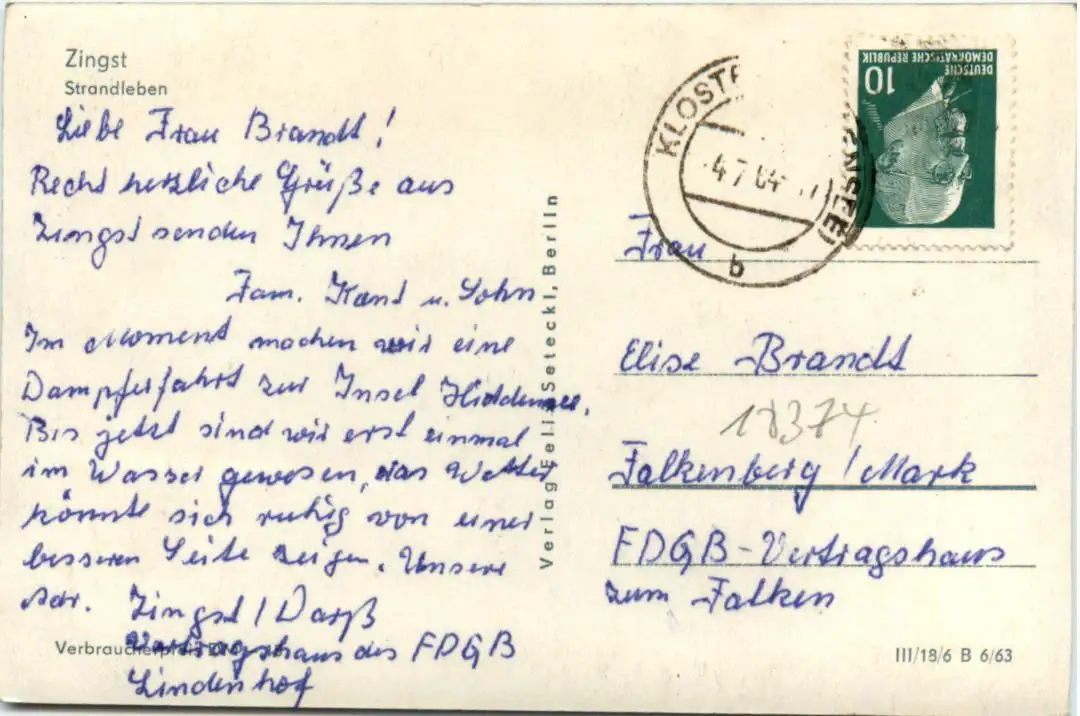 Zingst
Strandleben
Liebe Frau Brandt!
Recht herzliche Grüße aus
Zingst senden Ihnen
Fam. Kant u. Sohn
Im Moment machen wir eine
Dampferfahrt zur Insel Hiddensee.
Bis jetzt sind wir erst einmal
im Wasser gewesen, das Wetter
könnte sich ruhig von einer
besseren Seite zeigen. Unsere
Adr. Zingst / Darß
Vertragshaus des FDGB
Lindenhof
Verbraucherpreis
Verlag Felix Seteckl, Berlin
KLOST
b
DEUTSCHE
DEMOKRATISCHE REPUBLIK
10
Frau
Elise Brandt
18374
Falkenberg / Mark
FDGB-Vertragshaus
zum Falken
III/18/6 B 6/63